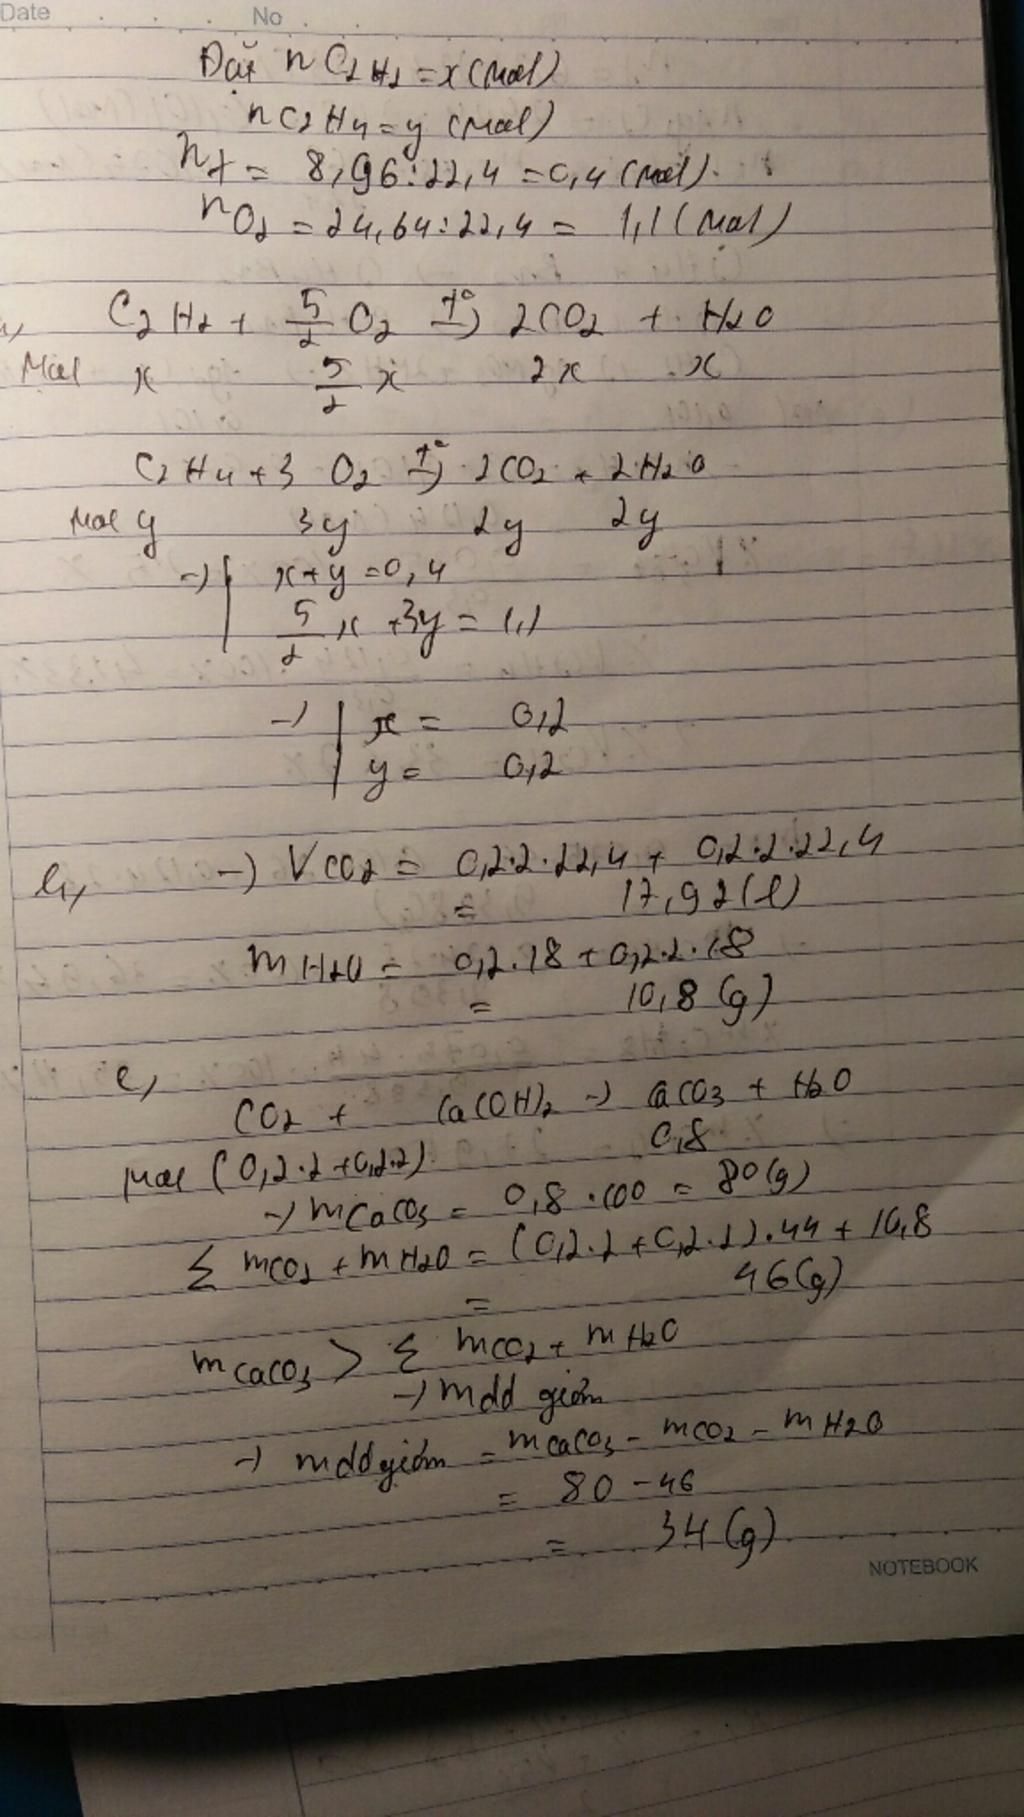 Date No
Đặt nC2H2 = x (mol)
nC2H4 = y (mol)
nX = 8,96 : 22,4 = 0,4 (mol).
nO2 = 24,64 : 22,4 = 1,1 (mol)
a, C2H2 + 5/2 O2 t°→ 2CO2 + H2O
Mol x 5/2 x 2x x
C2H4 + 3 O2 t°→ 2CO2 + 2H2O
Mol y 3y 2y 2y
→ | x + y = 0,4
5/2 x + 3y = 1,1
→ | x = 0,2
| y = 0,2
b, → VCO2 = 0,2.2.22,4 + 0,2.2.22,4
= 17,92 (l)
mH2O = 0,2.18 + 0,2.2.18
= 10,8 (g)
c,
CO2 + Ca(OH)2 → CaCO3 + H2O
Mol (0,2.2 + 0,2.2) 0,8
→ mCaCO3 = 0,8.100 = 80 (g)
Σ mCO2 + mH2O = (0,2.2 + 0,2.2).44 + 10,8
= 46 (g)
mCaCO3 > Σ mCO2 + mH2O
→ mdd giảm
→ mdd giảm = mCaCO3 - mCO2 - mH2O
= 80 - 46
= 34 (g)
NOTEBOOK